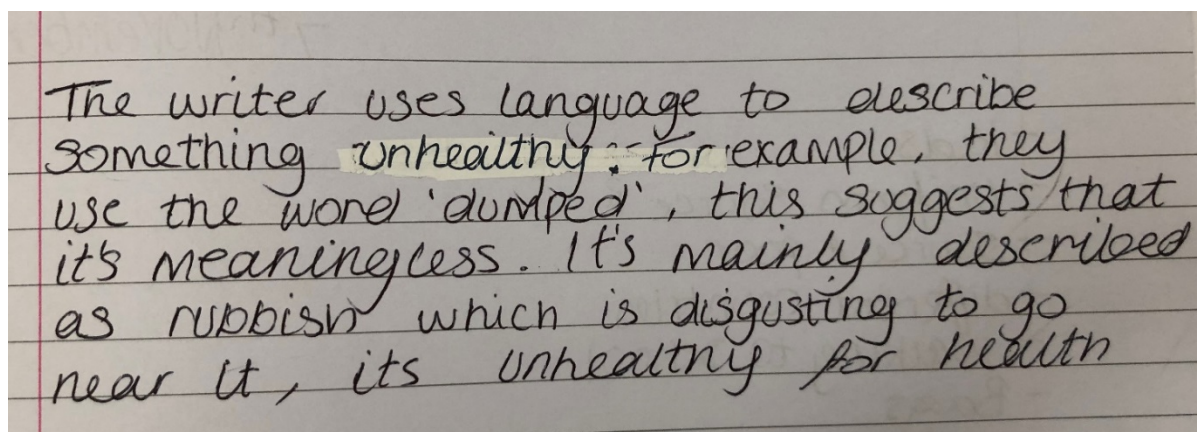 The writer uses language to describe
something unhealthy. For example, they
use the word 'dumped', this suggests that
it's meaningless. It's mainly described
as rubbish which is disgusting to go
near it, its unhealthy for health